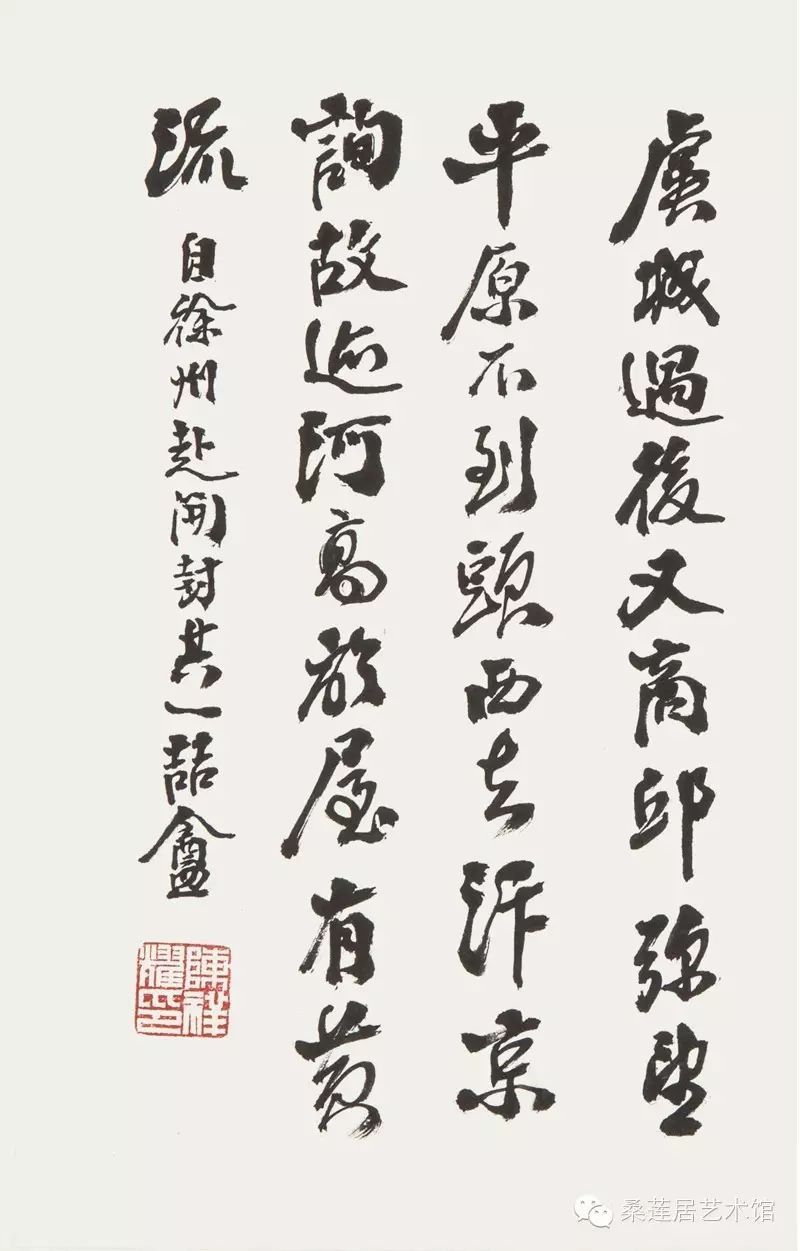 虞城過後又商邱弥望
平原不到頭西去汴京
詢故迹河高於屋有黄
流
自徐州赴開封其一喆盦
陳祥耀印
桑莲居艺术馆